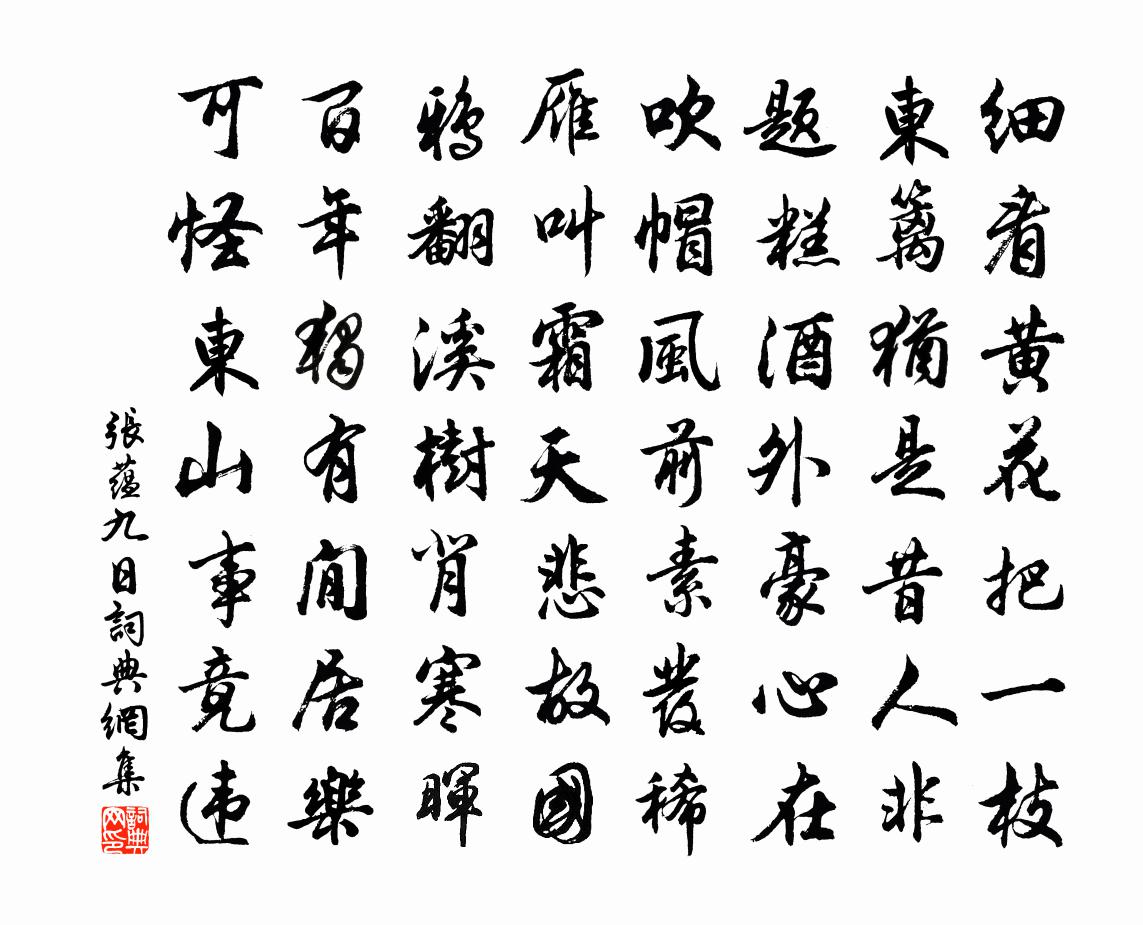 细看黄花把一枝
東篱猶是昔人非
题糕酒外豪心在
吹帽風前素發稀
雁叫霜天悲故國
鸦翻溪樹背寒暉
百年独有閒居樂
可怪東山事竟违
張蕴九日詞典網集
詞典网印